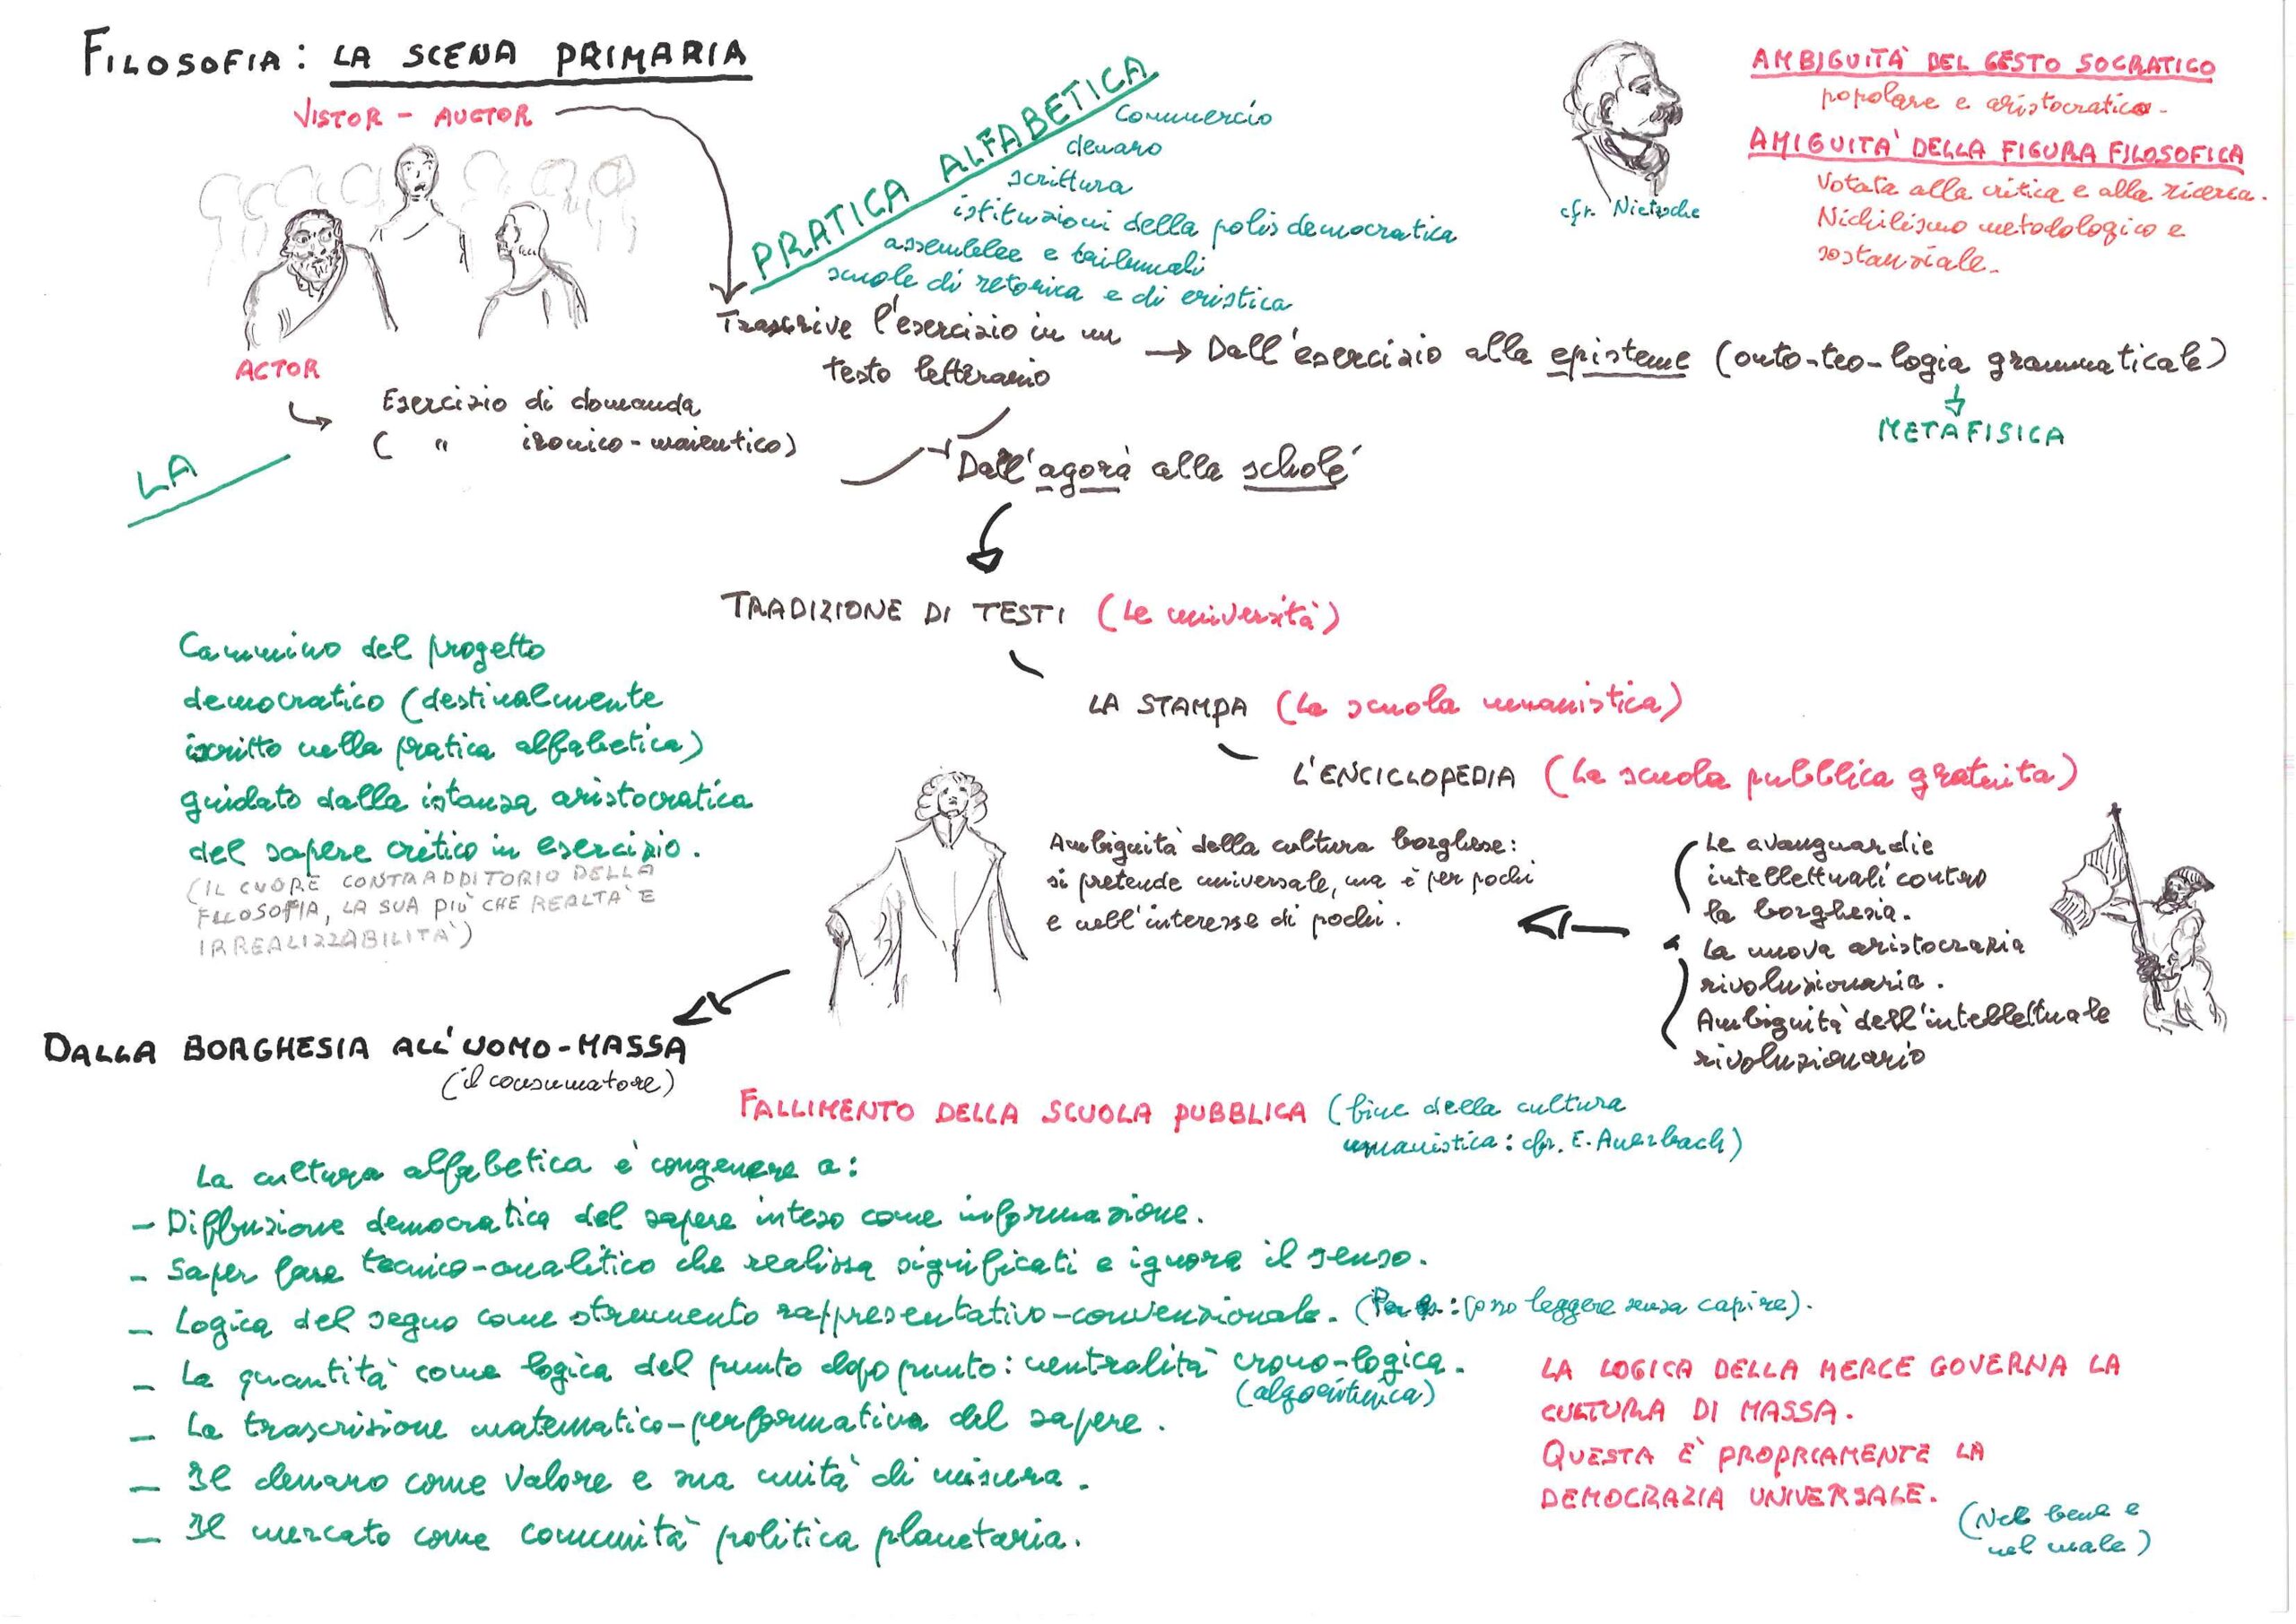 FILOSOFIA: LA SCENA PRIMARIA
VISTOR - AUCTOR
ACTOR
Esercizio di domanda
( " ironico-maieutico)
LA
PRATICA ALFABETICA
Commercio
denaro
scrittura
istituzioni della polis democratica
assemblee e tribunali
scuole di retorica e di eristica
Trascrive l'esercizio in un
testo letterario
→ Dall'esercizio alla episteme (onto-teo-logia grammaticale)
METAFISICA
cfr. Nietzsche
AMBIGUITÀ DEL GESTO SOCRATICO
popolare e aristocratico.
AMIGUITA' DELLA FIGURA FILOSOFICA
Votata alla critica e alla ricerca.
Nichilismo metodologico e
sostanziale.
Dall'agorà alla scholé
TRADIZIONE DI TESTI (Le università)
LA STAMPA (La scuola umanistica)
L'ENCICLOPEDIA (La scuola pubblica gratuita)
Cammino del progetto
democratico (destinalmente
iscritto nella pratica alfabetica)
guidato dalla istanza aristocratica
del sapere critico in esercizio.
(IL CUORE CONTRADDITORIO DELLA
FILOSOFIA, LA SUA PIÙ CHE REALTÀ E
IRREALIZZABILITÀ)
Ambiguità della cultura borghese:
si pretende universale, ma è per pochi
e nell'interesse di pochi.
Le avanguardie
intellettuali contro
la borghesia.
La nuova aristocrazia
rivoluzionaria.
Ambiguità dell'intellettuale
rivoluzionario
DALLA BORGHESIA ALL'UOMO-MASSA
(il consumatore)
FALLIMENTO DELLA SCUOLA PUBBLICA (fine della cultura
umanistica: cfr. E. Auerbach)
La cultura alfabetica è congenere a:
- Diffusione democratica del sapere inteso come informazione.
- Saper fare tecnico-analitico che realizza significati e ignora il senso.
- Logica del segno come strumento rappresentativo-convenzionale. (Per es.: posso leggere senza capire).
- La quantità come logica del punto dopo punto: neutralità crono-logica.
(algoritmica)
- La trascrizione matematico-performativa del sapere.
- Il denaro come valore e sua unità di misura.
- Il mercato come comunità politica planetaria.
LA LOGICA DELLA MERCE GOVERNA LA
CULTURA DI MASSA.
QUESTA È PROPRIAMENTE LA
DEMOCRAZIA UNIVERSALE.
(Nel bene e
nel male)